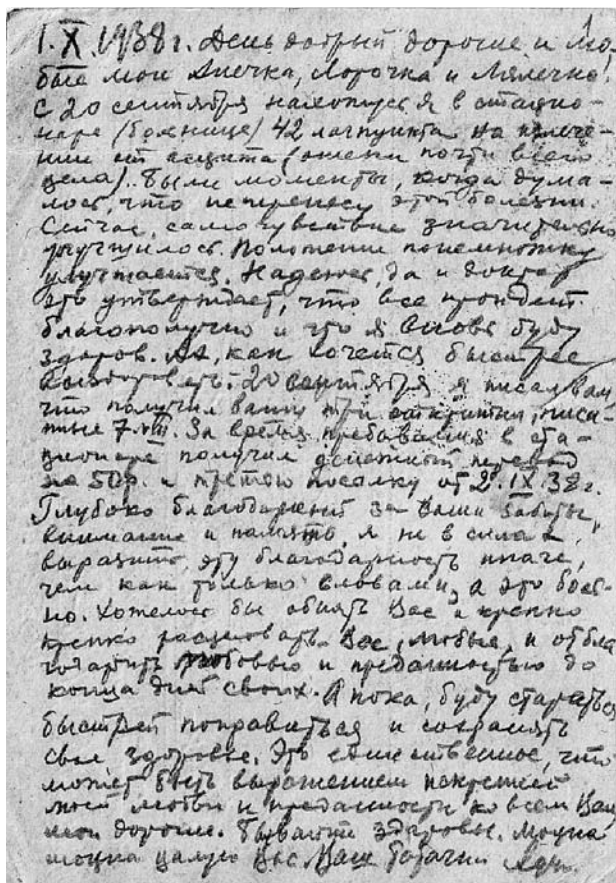 1.X.1938 г. День добрый дорогие и лю-
бые мои Анечка, Лорочка и Лялечка!
С 20 сентября нахожусь я в стацио-
наре (больнице) 42 лагпункта на излече-
нии от асцита (отеки почти всего
тела). Были моменты, когда дума-
лось, что не перенесу этой болезни.
Сейчас, самочувствие значительно
улучшилось. Положение понемножку
улучшается. Надеюсь, да и доктор
это утверждает, что все пройдет
благополучно и что я вновь буду
здоров. Ах, как хочется быстрее
выздороветь. 20 сентября я писал вам,
что получил ваши три открытки, писа-
ные 7.VIII. За время пребывания в ста-
ционаре получил денежный перевод
на 50р. и третью посылку от 2.IX.38 г.
Глубоко благодарен за ваши заботы,
внимание и память. Я не в силах
выразить эту благодарность иначе,
чем как только словами, а это
но. Хотелось бы обнять Вас и крепко
крепко расцеловать Вас, любые, и отбла-
годарить любовью и преданностью до
конца дней своих. А пока, буду стараться
быстрей поправиться и сохранять
свое здоровье. Это единственное, что
может быть выражением
моей любви и преданности ко всем Вам
мои дорогие. Бывайте здоровы. Моцна
моцна целую Вас. Ваш